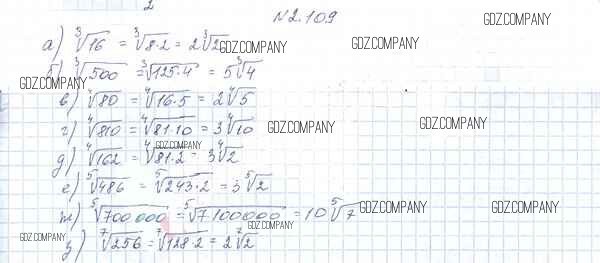 2
№2.109
GDZ.COMPANY
а) ∛16 = ∛8·2 = 2∛2 GDZ.COMPANY GDZ.COMPANY
б) ∛500 = ∛125·4 = 5∛4
GDZ.COMPANY
в) ∜80 = ∜16·5 = 2∜5
г) ∜810 = ∜81·10 = 3∜10 GDZ.COMPANY GDZ.COMPANY
GDZ.COMPANY
д) ∜162 = ∜81·2 = 3∜2
е) ⁵√486 = ⁵√243·2 = 3⁵√2
ж) ⁵√700000 = ⁵√7·100000 = 10⁵√7 GDZ.COMPANY GDZ.COMPANY
GDZ.COMPANY GDZ.COMPANY
з) ⁷√256 = ⁷√128·2 = 2⁷√2